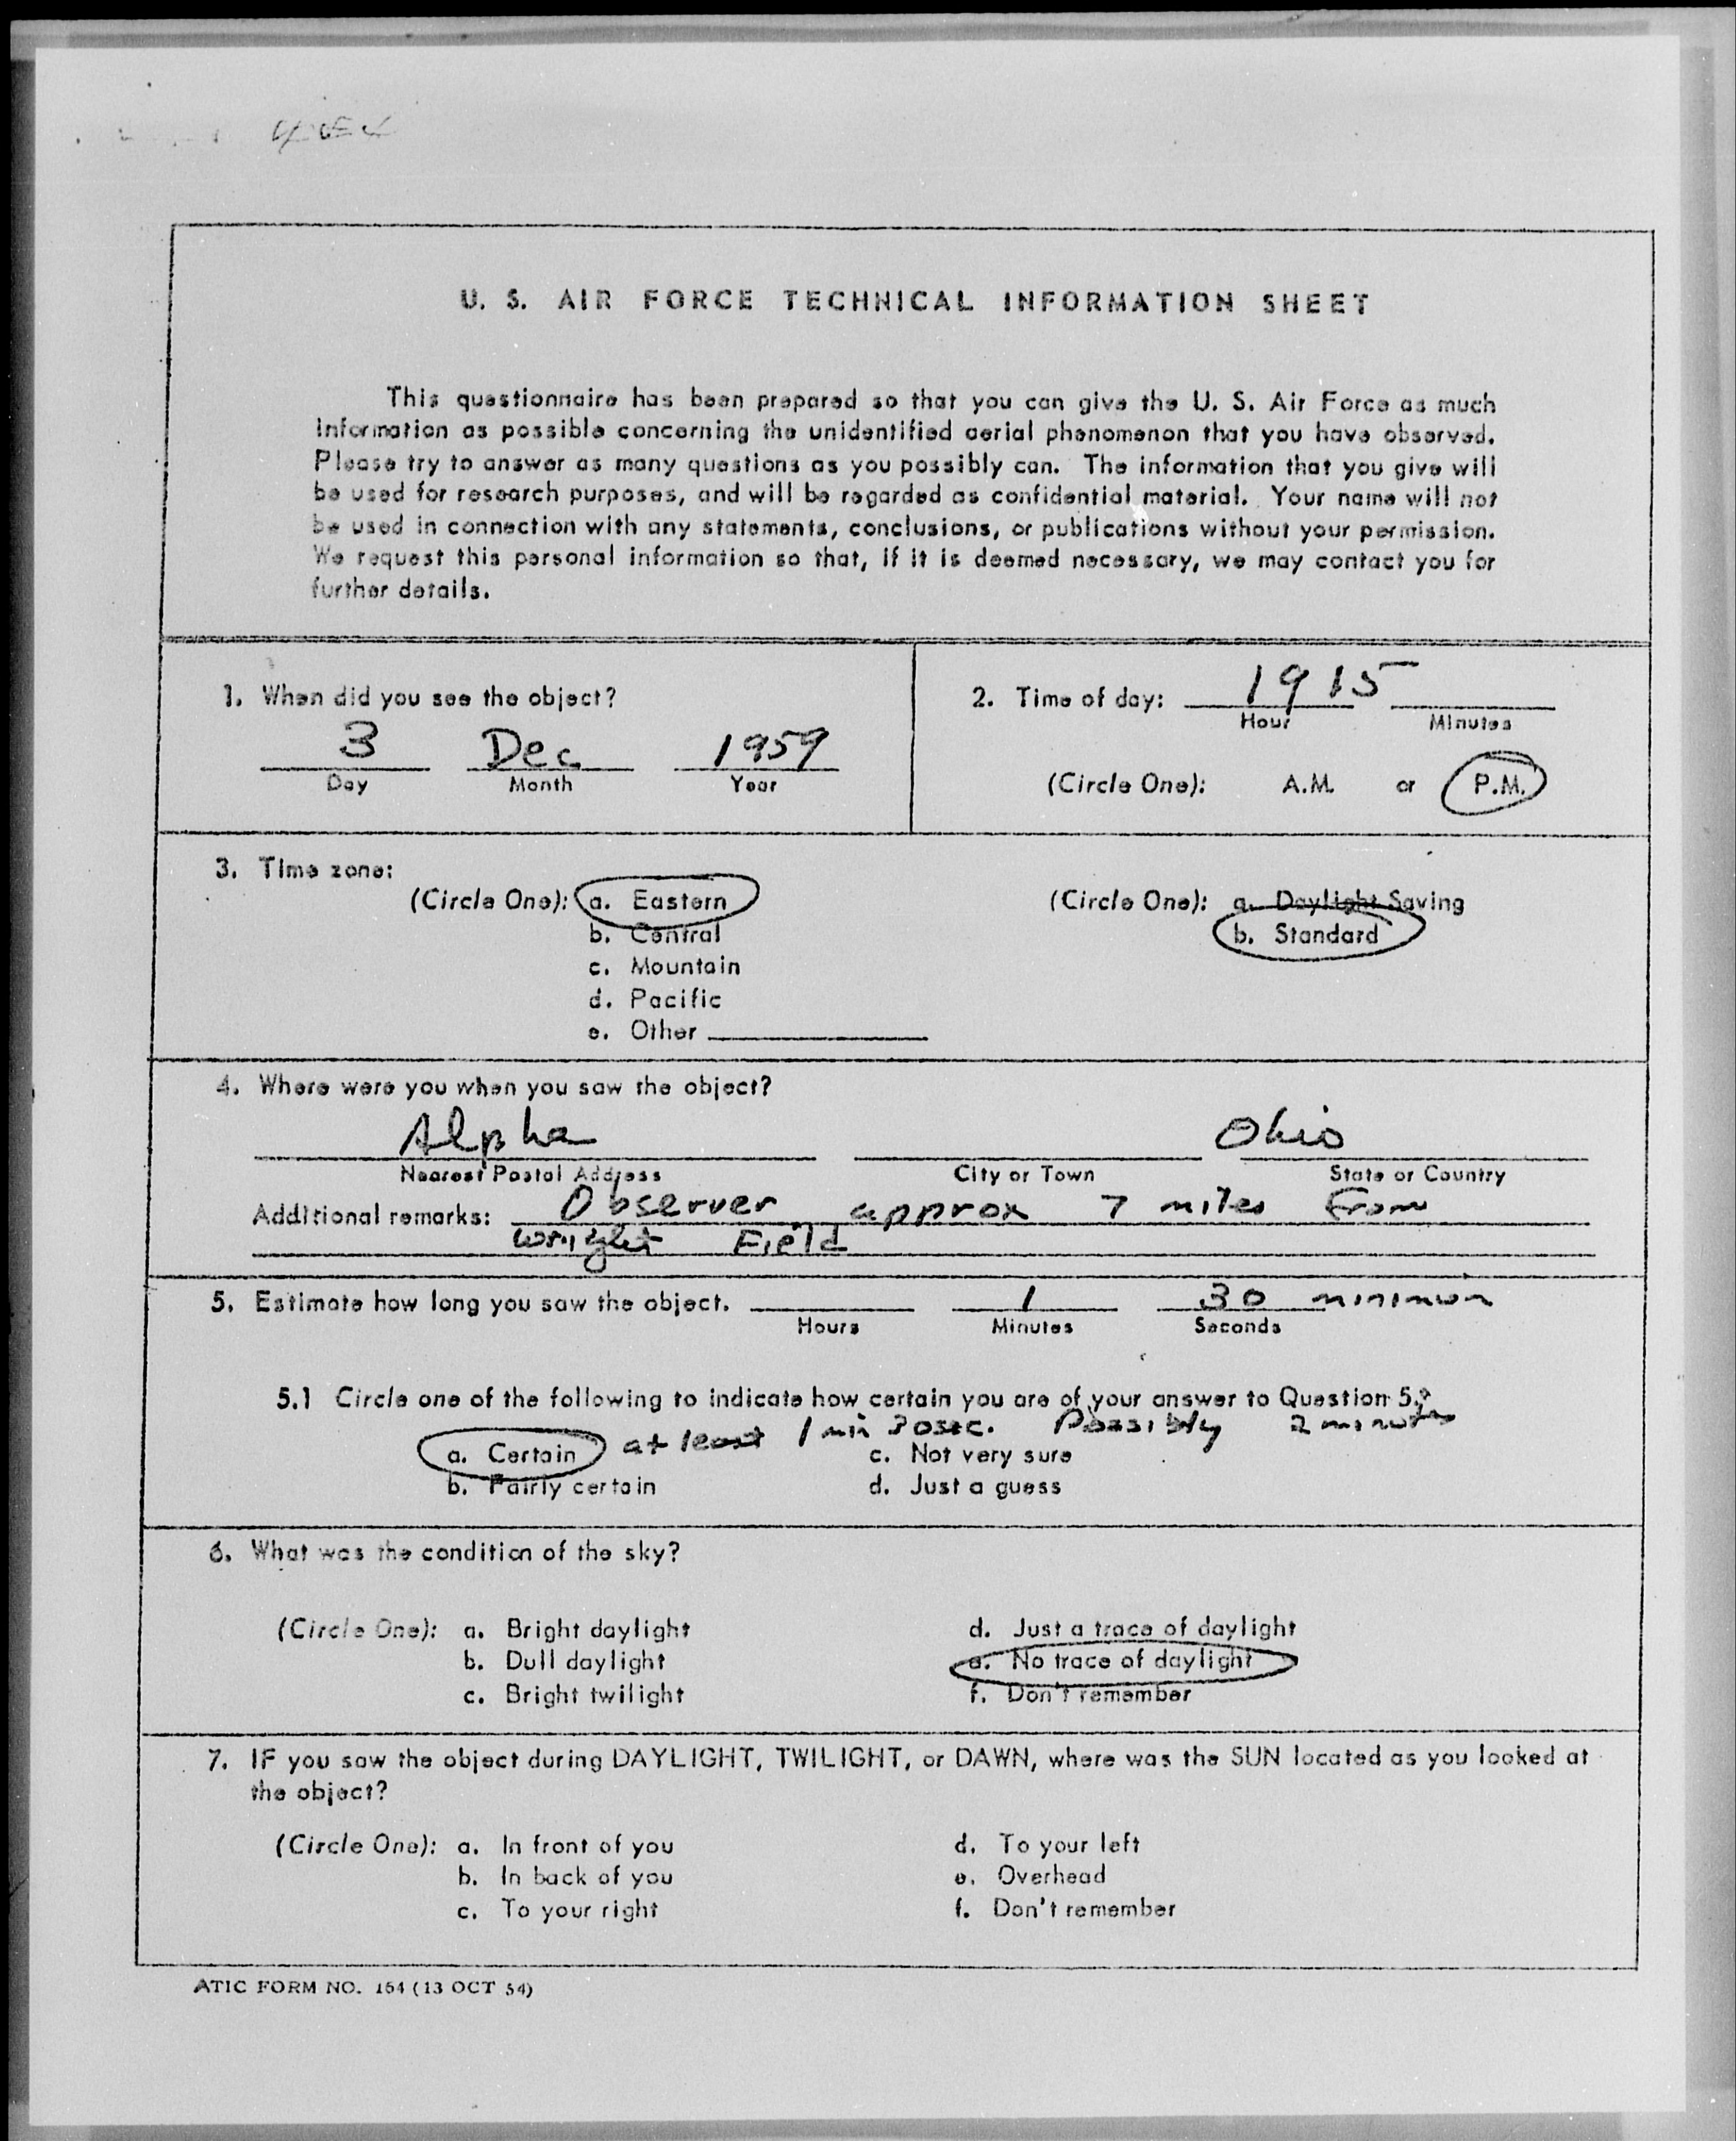 U. S. AIR FORCE TECHNICAL INFORMATION SHEET
This questionnaire has been prepared so that you can give the U. S. Air Force as much
information as possible concerning the unidentified aerial phenomenon that you have observed.
Please try to answer as many questions as you possibly can. The information that you give will
be used for research purposes, and will be regarded as confidential material. Your name will not
be used in connection with any statements, conclusions, or publications without your permission.
We request this personal information so that, if it is deemed necessary, we may contact you for
further details.
1. When did you see the object?
3 Dec 1959
Day Month Year
2. Time of day: 1915
Hour Minutes
(Circle One): A.M. or P.M.
3. Time zone:
(Circle One): a. Eastern
b. Central
c. Mountain
d. Pacific
e. Other
(Circle One): a. Daylight Saving
b. Standard
4. Where were you when you saw the object?
Alpha Ohio
Nearest Postal Address City or Town State or Country
Additional remarks: Observer approx 7 miles From
Wright Field
5. Estimate how long you saw the object. 1 30 minimum
Hours Minutes Seconds
5.1 Circle one of the following to indicate how certain you are of your answer to Question 5.
at least 1 min 30 sec. Possibly 2 minutes
a. Certain c. Not very sure
b. Fairly certain d. Just a guess
6. What was the condition of the sky?
(Circle One): a. Bright daylight d. Just a trace of daylight
b. Dull daylight e. No trace of daylight
c. Bright twilight f. Don't remember
7. IF you saw the object during DAYLIGHT, TWILIGHT, or DAWN, where was the SUN located as you looked at
the object?
(Circle One): a. In front of you d. To your left
b. In back of you e. Overhead
c. To your right f. Don't remember
ATIC FORM NO. 164 (13 OCT 54)